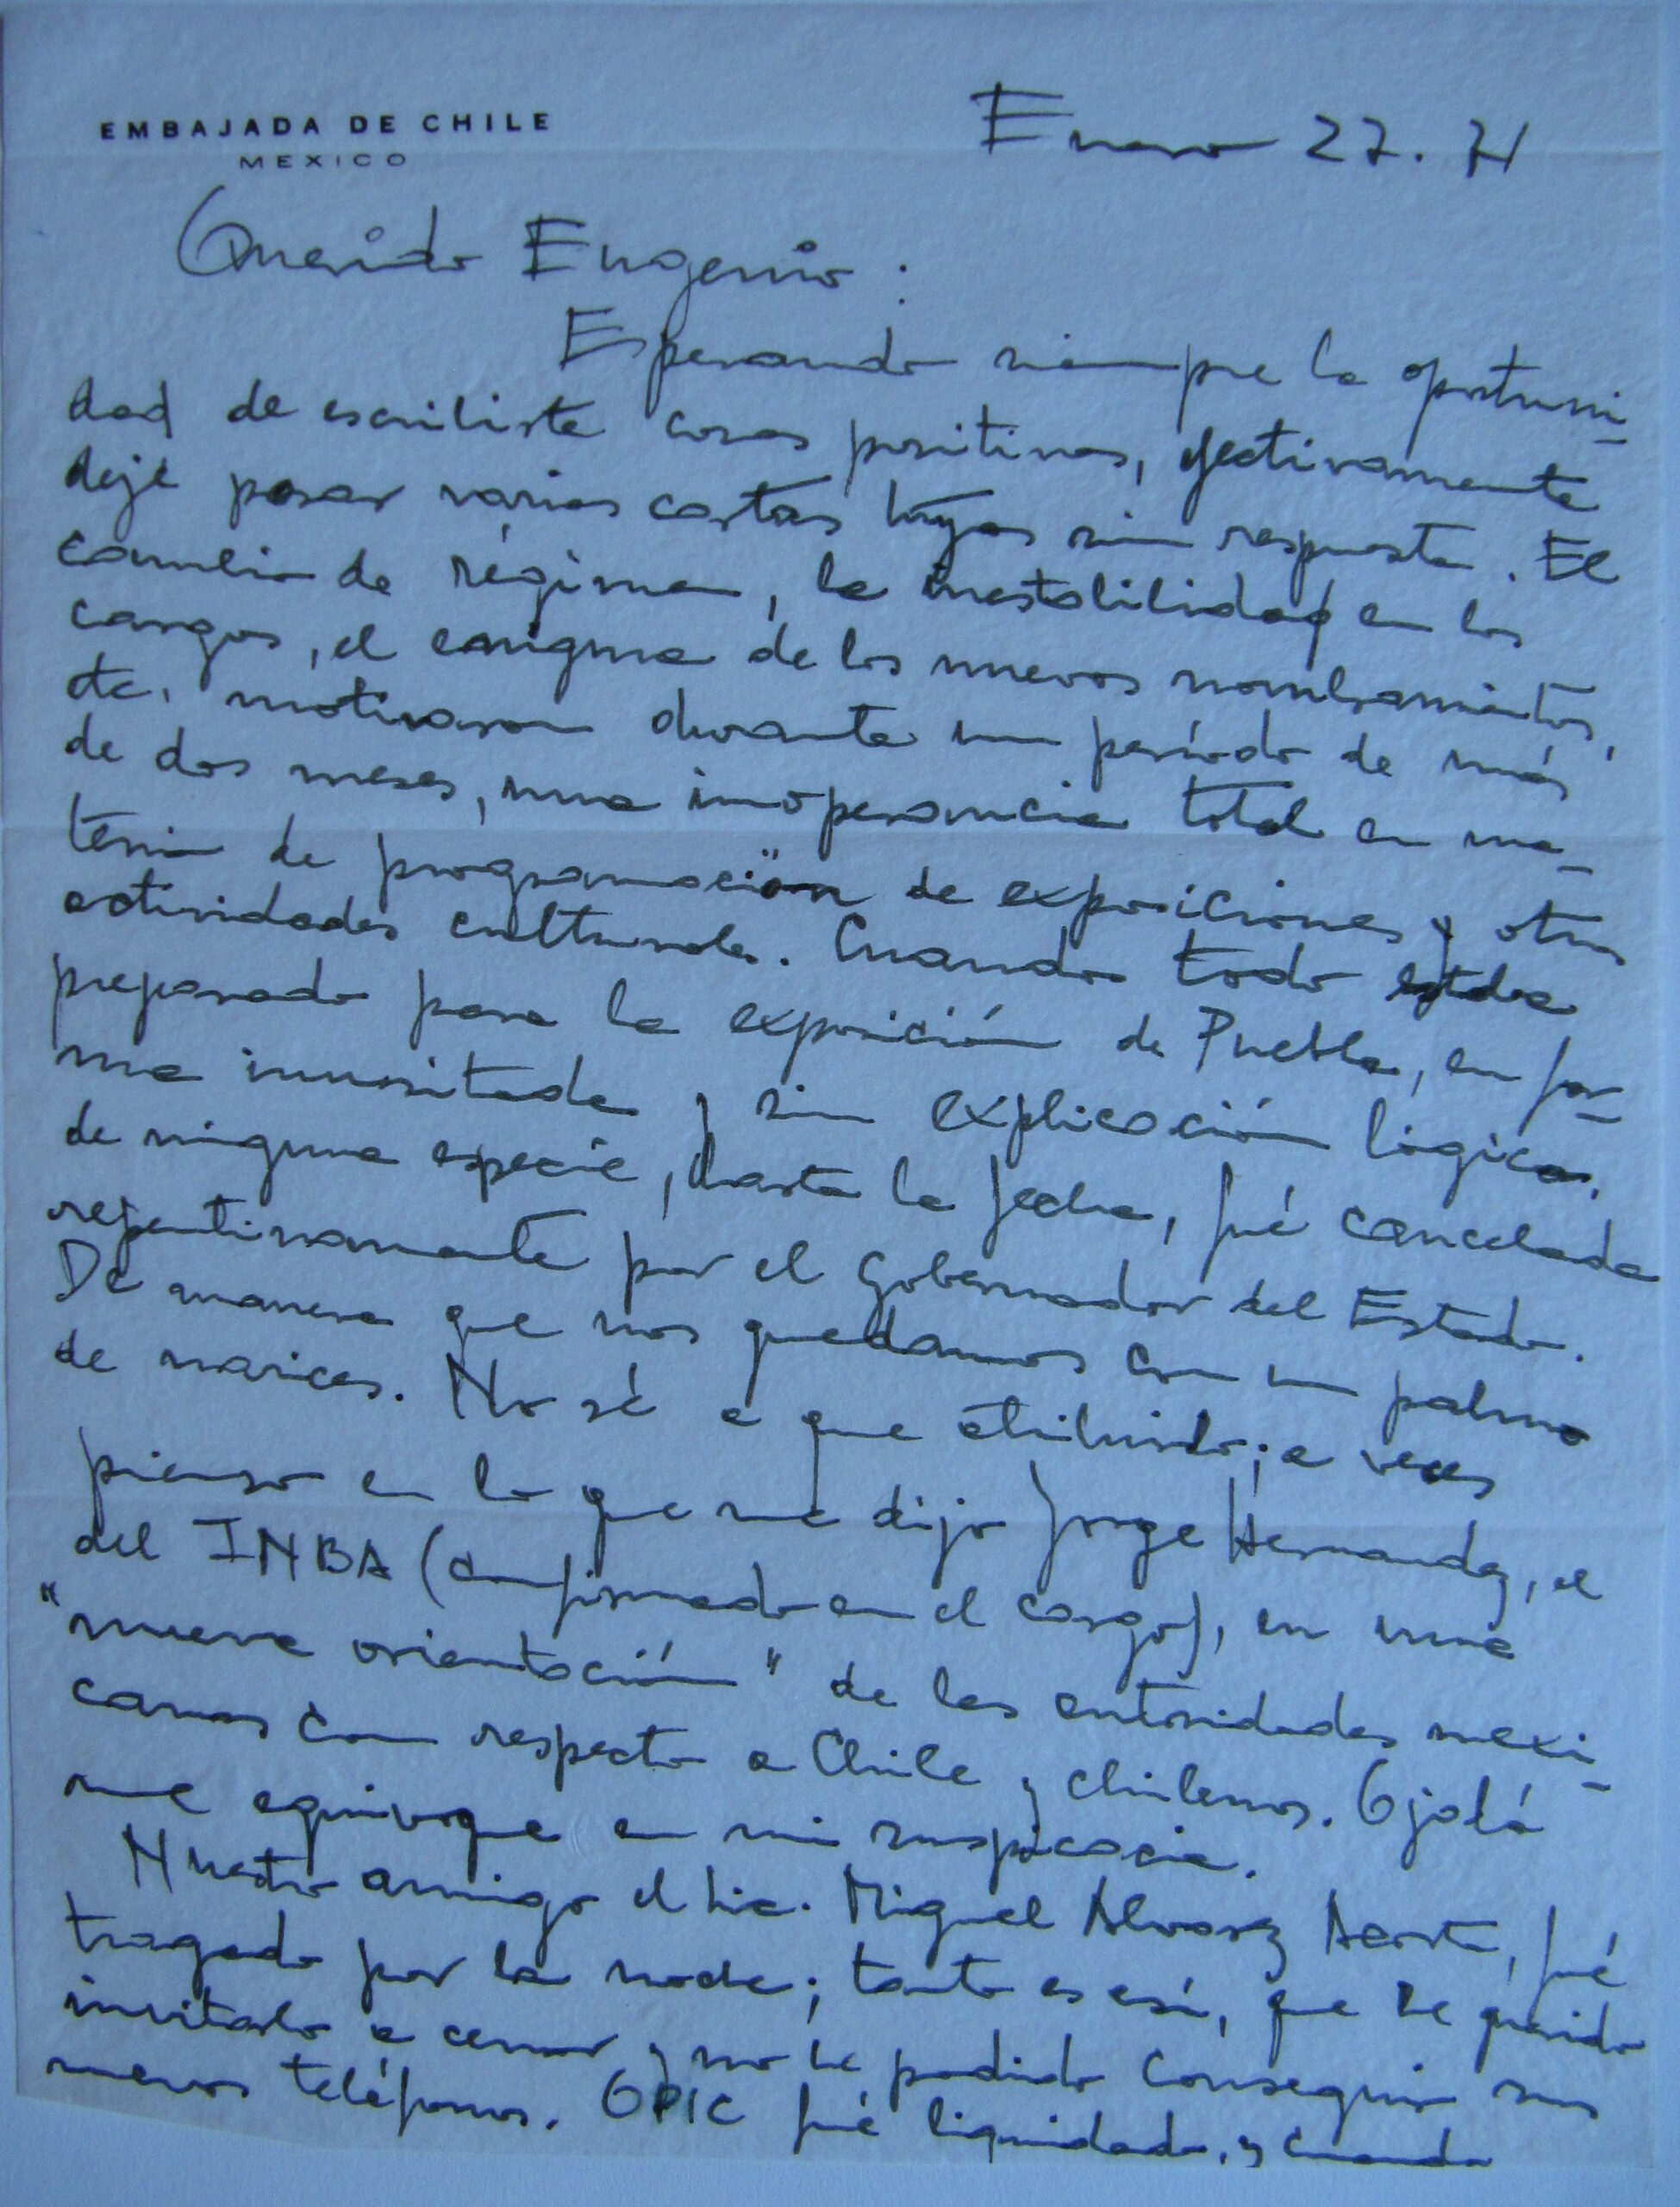 EMBAJADA DE CHILE
MEXICO
Enero 27. 71
Querido Eugenio :
Esperando siempre la oportuni-
dad de escribirte cosas positivas, efectivamente
dejé pasar varias cartas tuyas sin respuesta. El
cambio de régimen, la inestabilidad en los
cargos, el enigma de los nuevos nombramientos,
etc. motivaron durante un período de más
de dos meses, una inoperancia total en ma-
teria de programación de exposiciones y otras
actividades culturales. Cuando todo estaba
preparado para la exposición de Puebla, en for-
ma inusitada y sin explicación lógica,
de ninguna especie, hasta la fecha, fué cancelada
repentinamente por el Gobernador del Estado.
De manera que nos quedamos con un palmo
de narices. No sé a que atribuirlo; a veces
pienso en lo que me dijo Jorge Hernandez, el
del INBA (confirmado en el cargo), en una
"nueva orientación" de las autoridades mexi-
canas con respecto a Chile y chilenos. Ojalá
me equivoque en mi suspicacia.
Nuestro amigo el Lic. Miguel Alvarez Acosta, fué
tragado por la noche; tanto es así, que he querido
invitarlo a cenar y no he podido conseguir sus
nuevos teléfonos. OPIC fué liquidada, y cuando